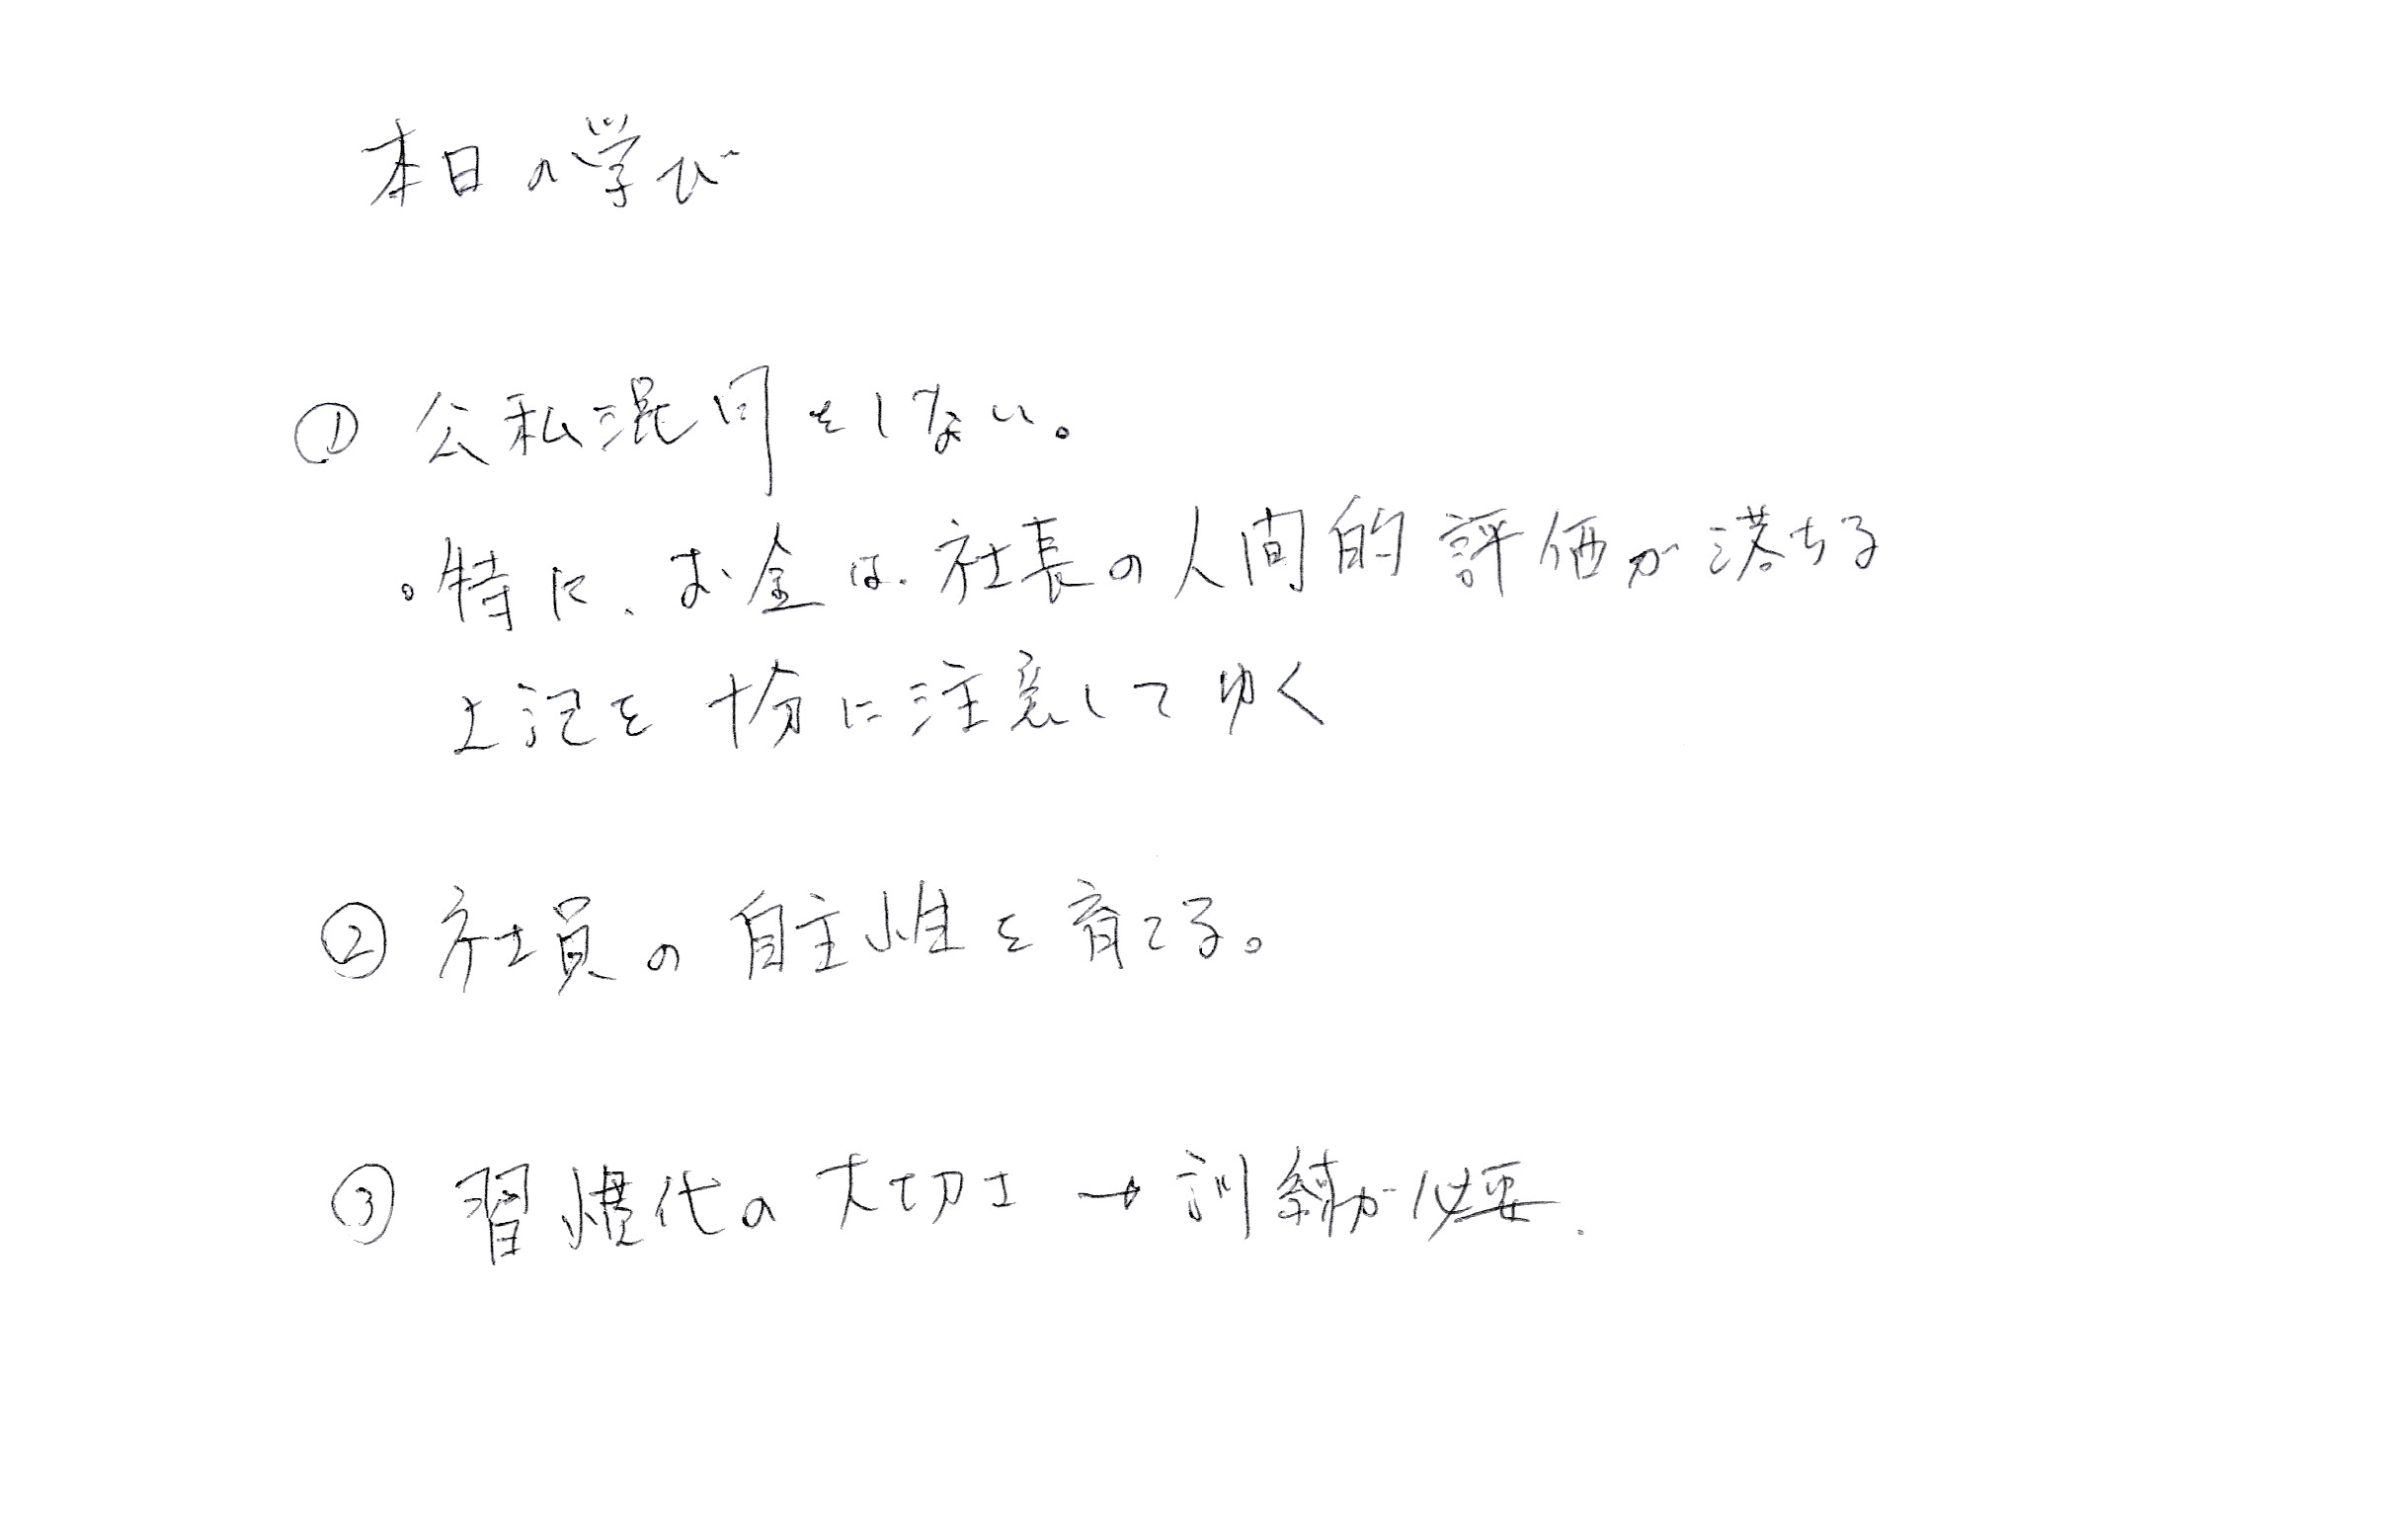 本日の学び
① 公私混同をしない。
。特に、お金は、社長の人間的評価が落ちる
上記を十分に注意してゆく
② 社員の自主性を育てる。
③ 習慣代の大切さ → 訓練が必要.